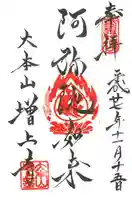 奉拝
平成廿年十一月十五日
阿弥陀如来
大本山増上寺